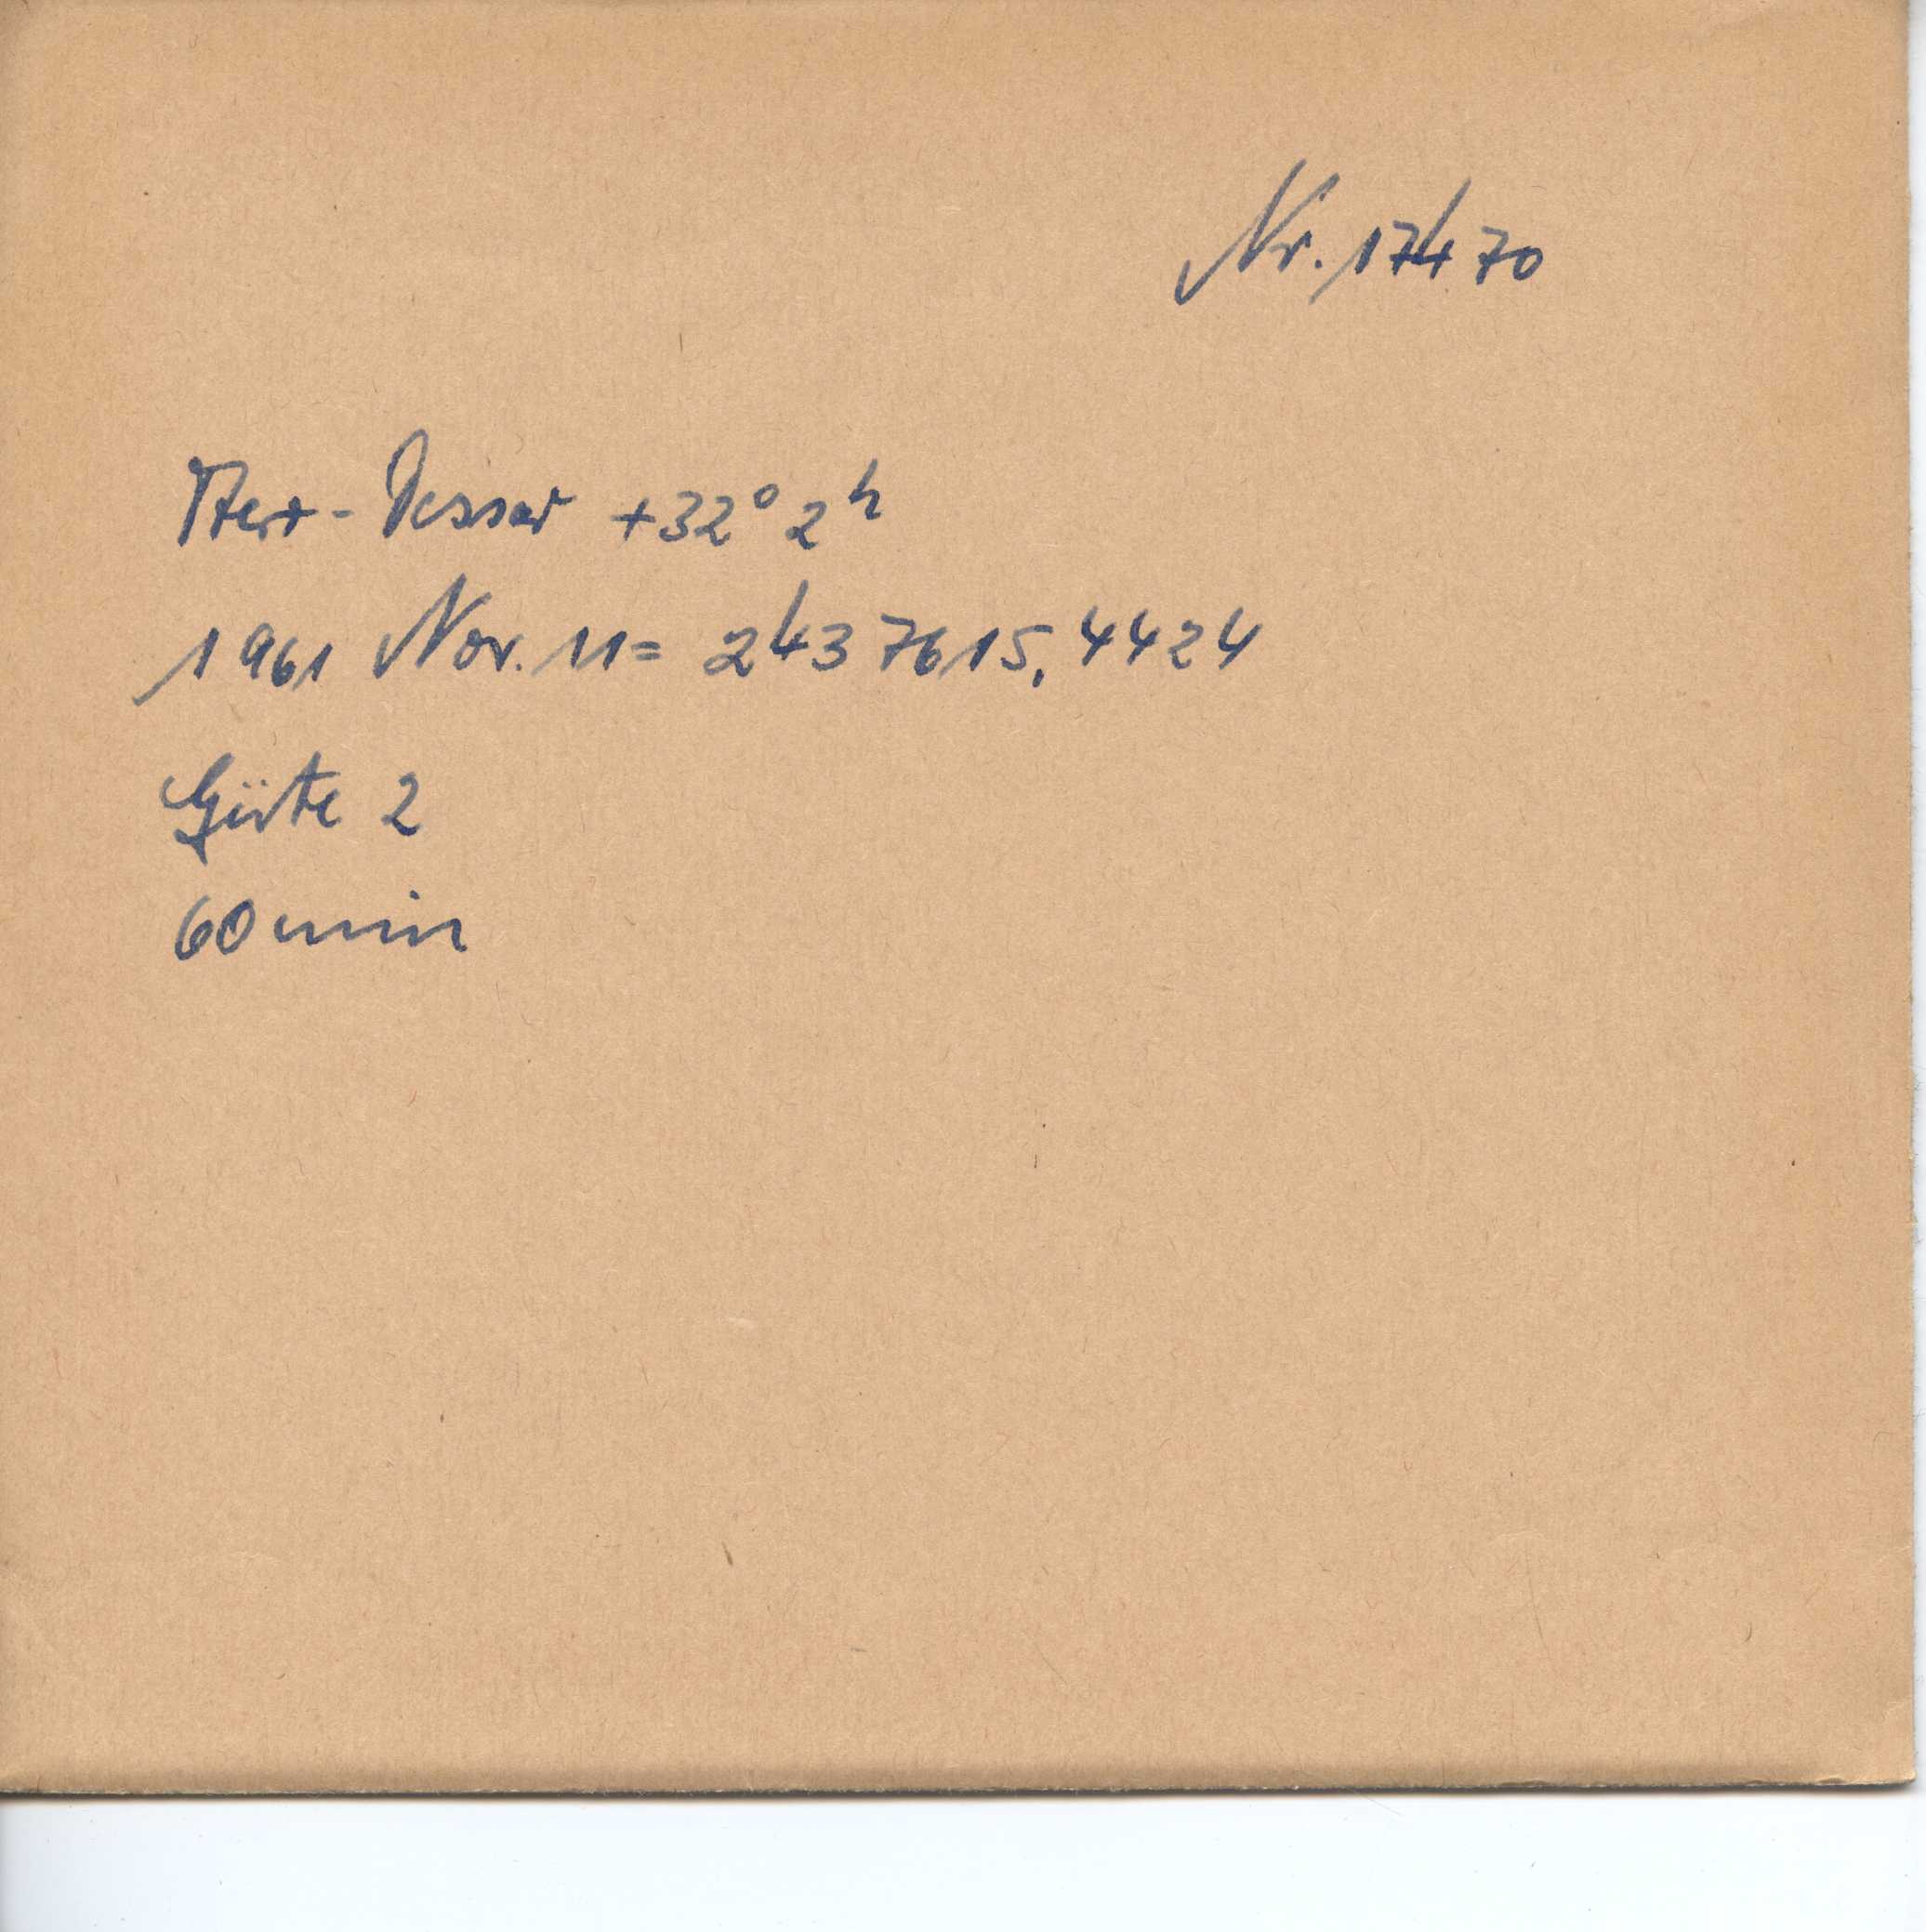 Nr. 17470
Tert-Tessar +32° 2ʰ
1961 Nov. 11 = 2437615,4424
Güte 2
60 min